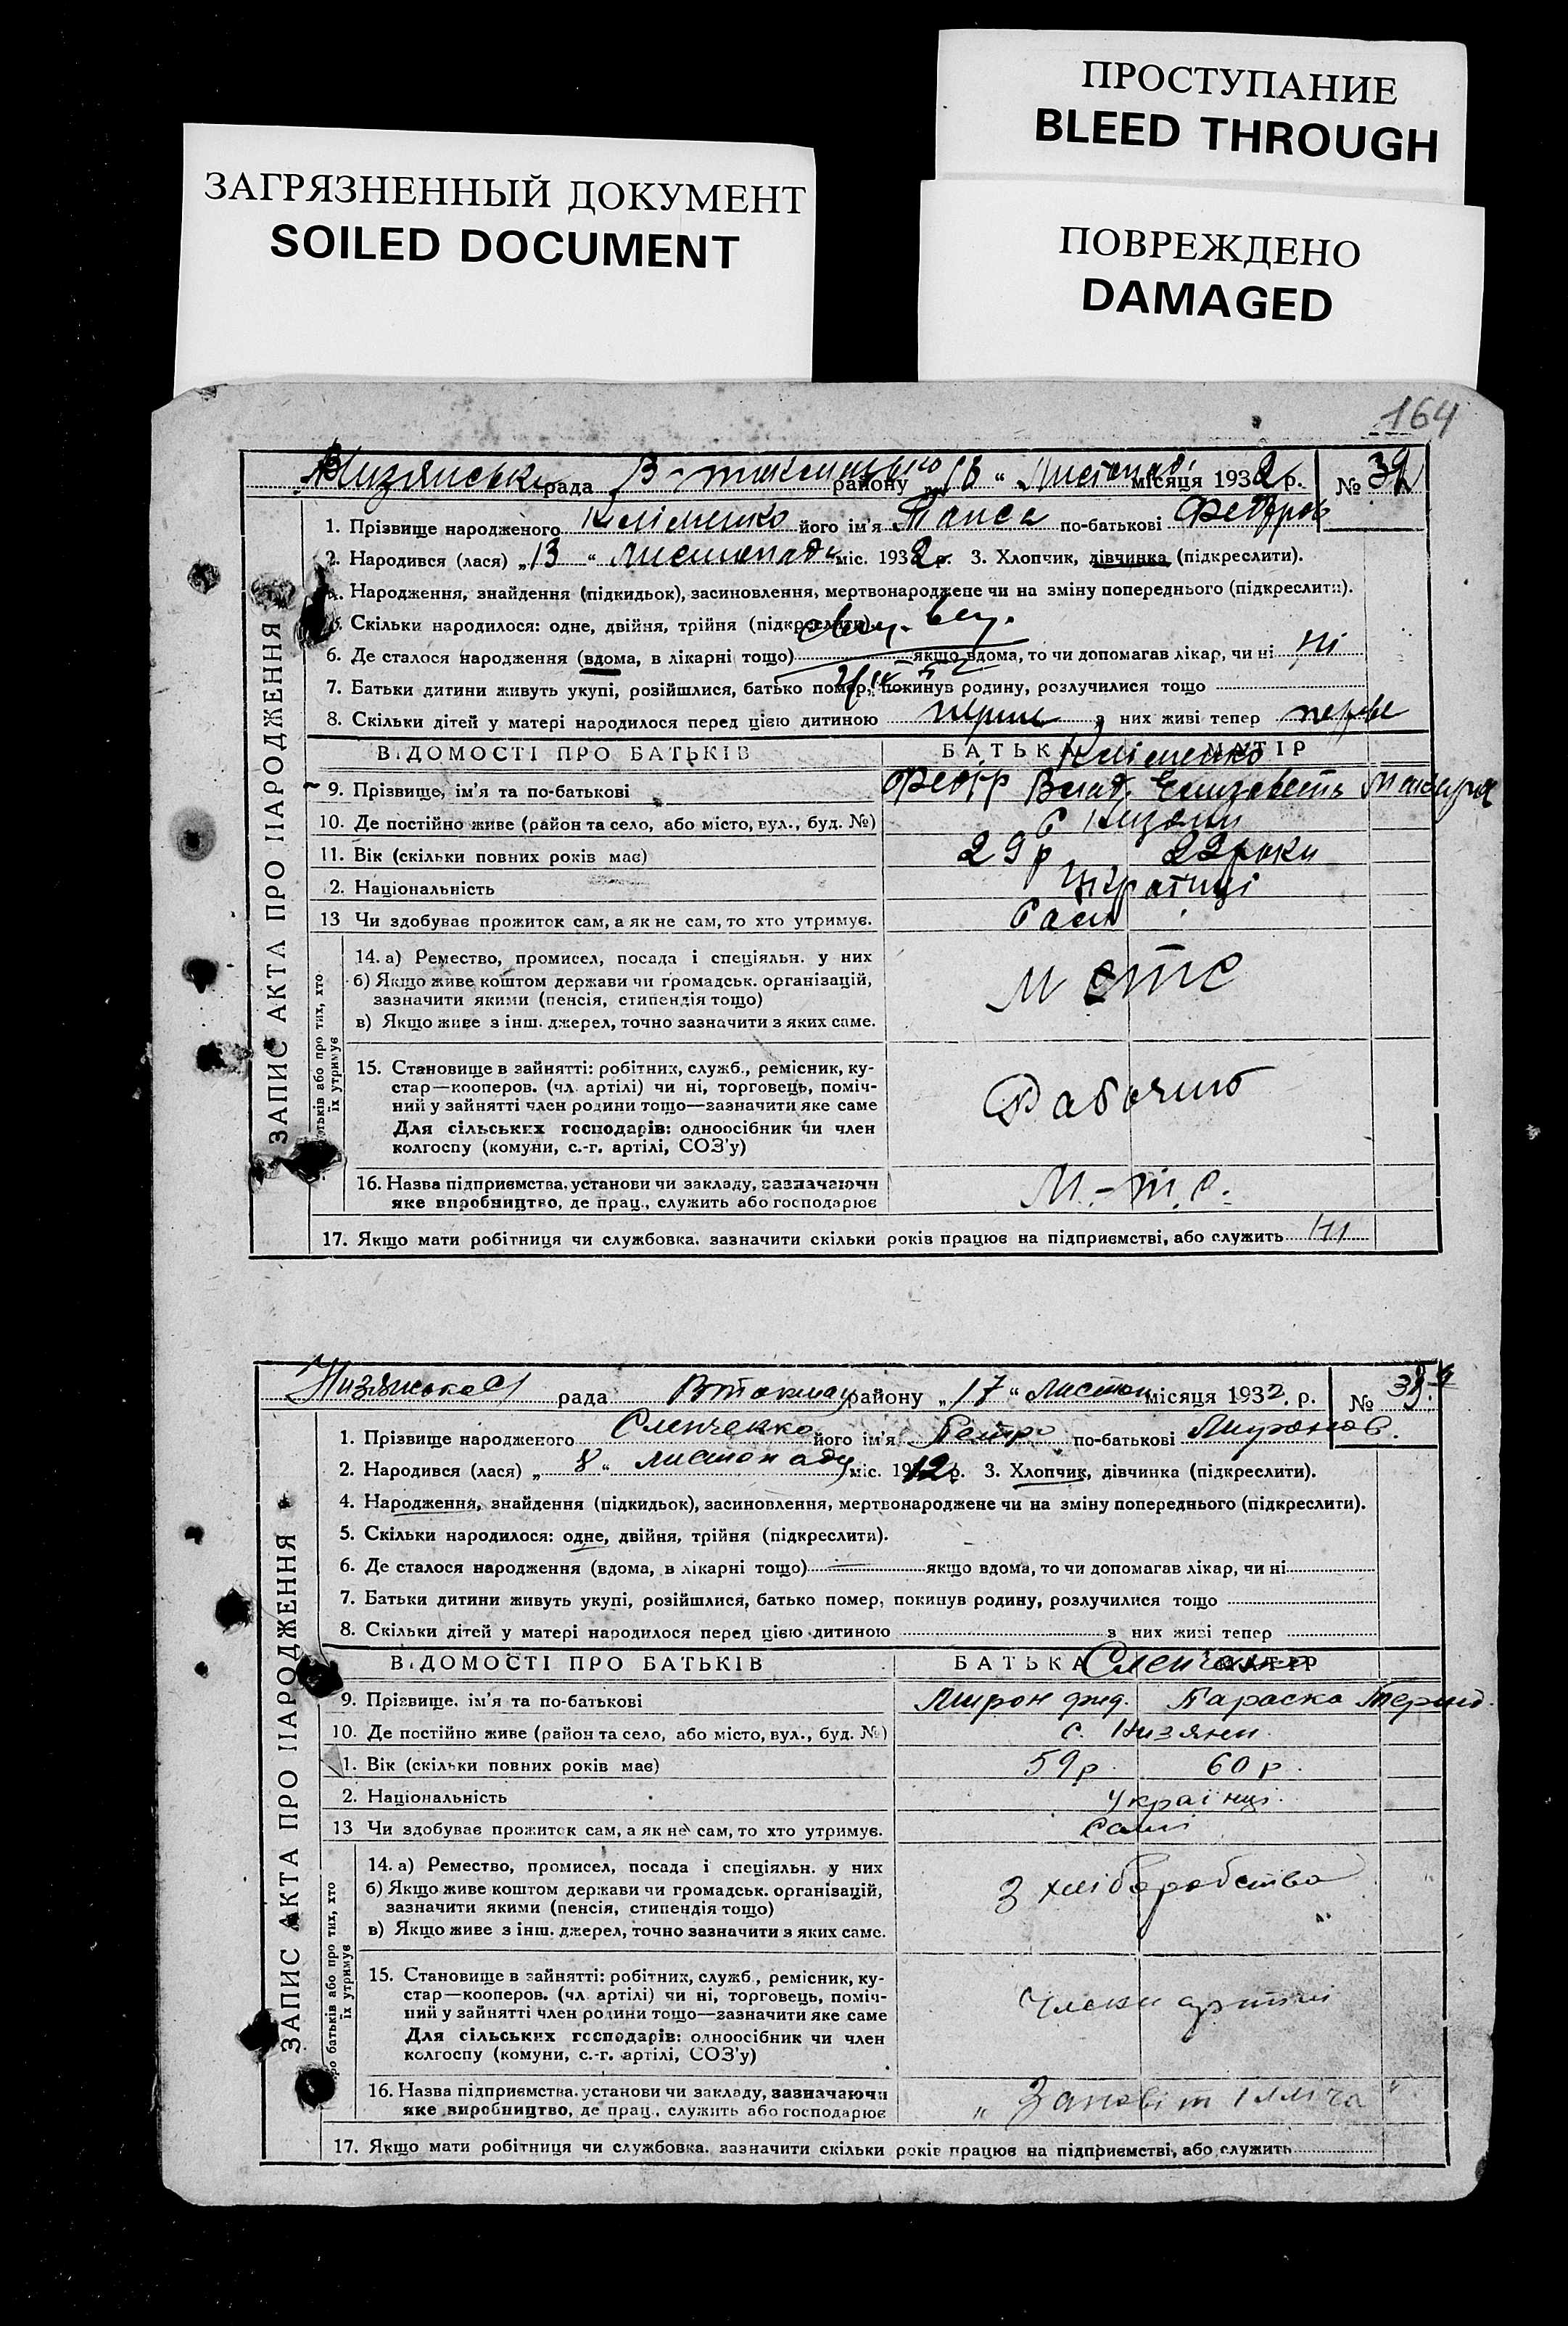 ПРОСТУПАНИЕ
BLEED THROUGH
ЗАГРЯЗНЕННЫЙ ДОКУМЕНТ
SOILED DOCUMENT
ПОВРЕЖДЕНО
DAMAGED
164
рада району „16“ Листопад. місяця 1932 р. №
1. Прізвище народженого Кліменко його ім'я Таиса по-батькові Федоров
2. Народився (лася) „13“ листопада міс. 1932 р. 3. Хлопчик, дівчинка (підкреслити).
4. Народження, знайдення (підкидьок), засиновлення, мертвонароджене чи на зміну попереднього (підкреслити).
5. Скільки народилося: одне, двійня, трійня (підкреслити).
6. Де сталося народження (вдома, в лікарні тощо) якщо вдома, то чи допомагав лікар, чи ні Ні
7. Батьки дитини живуть укупі, розійшлися, батько помер, покинув родину, розлучилися тощо
8. Скільки дітей у матері народилося перед цією дитиною перше з них живі тепер перше
ВІДОМОСТІ ПРО БАТЬКІВ БАТЬКА МАТІР
Кліменко
9. Прізвище, ім'я та по-батькові Федір Влад. Єлизавета
10. Де постійно живе (район та село, або місто, вул., буд. №) С Низяни
11. Вік (скільки повних років має) 29 р 22 роки
2. Національність Українці
13 Чи здобував прожиток сам, а як не сам, то хто утримує. Самі
14. а) Ремество, промисел, посада і спеціяльн. у них
б) Якщо живе коштом держави чи громадськ. організацій,
зазначити якими (пенсія, стипендія тощо)
в) Якщо живе з інш. джерел, точно зазначити з яких саме.
М Т С
15. Становище в зайнятті: робітник, служб., ремісник, ку-
стар—кооперов. (чл. артілі) чи ні, торговець, поміч-
ний у зайнятті член родини тощо—зазначити яке саме
Для сільських господарів: одноосібник чи член
колгоспу (комуни, с.-г. артілі, СОЗ'у)
Рабочий
16. Назва підприємства, установи чи закладу, зазначаючи
яке виробництво, де прац., служить або господарює
М.-т.с.
17. Якщо мати робітниця чи службовка, зазначити скільки років працює на підприємстві, або служить Ні
ЗАПИС АКТА ПРО НАРОДЖЕННЯ
тьків або про тих, хто
їх утримує
Низянська С/ рада Втокмац району „17“ Листоп місяця 1932 р. №
1. Прізвище народженого Слепченко його ім'я Петро по-батькові Миронов.
2. Народився (лася) „8“ листопаду міс. 1912 р. 3. Хлопчик, дівчинка (підкреслити).
4. Народження, знайдення (підкидьок), засиновлення, мертвонароджене чи на зміну попереднього (підкреслити).
5. Скільки народилося: одне, двійня, трійня (підкреслити).
6. Де сталося народження (вдома, в лікарні тощо) якщо вдома, то чи допомагав лікар, чи ні
7. Батьки дитини живуть укупі, розійшлися, батько помер, покинув родину, розлучилися тощо
8. Скільки дітей у матері народилося перед цією дитиною з них живі тепер
ВІДОМОСТІ ПРО БАТЬКІВ БАТЬКА МАТІР
Слепченко
9. Прізвище, ім'я та по-батькові Мирон Параска
10. Де постійно живе (район та село, або місто, вул., буд. №) с. Низяни
1. Вік (скільки повних років має) 59 р. 60 р.
2. Національність Українці.
13 Чи здобував прожиток сам, а як не сам, то хто утримує. Самі
14. а) Ремество, промисел, посада і спеціяльн. у них
б) Якщо живе коштом держави чи громадськ. організацій,
зазначити якими (пенсія, стипендія тощо)
в) Якщо живе з інш. джерел, точно зазначити з яких саме.
З хліборобства
15. Становище в зайнятті: робітник, служб., ремісник, ку-
стар—кооперов. (чл. артілі) чи ні, торговець, поміч-
ний у зайнятті член родини тощо—зазначити яке саме
Для сільських господарів: одноосібник чи член
колгоспу (комуни, с.-г. артілі, СОЗ'у)
Члени артілі
16. Назва підприємства, установи чи закладу, зазначаючи
яке виробництво, де прац., служить або господарює
„Заповіт Ілліча“
17. Якщо мати робітниця чи службовка, зазначити скільки років працює на підприємстві, або служить
ЗАПИС АКТА ПРО НАРОДЖЕННЯ
ро батьків або про тих, хто
їх утримує